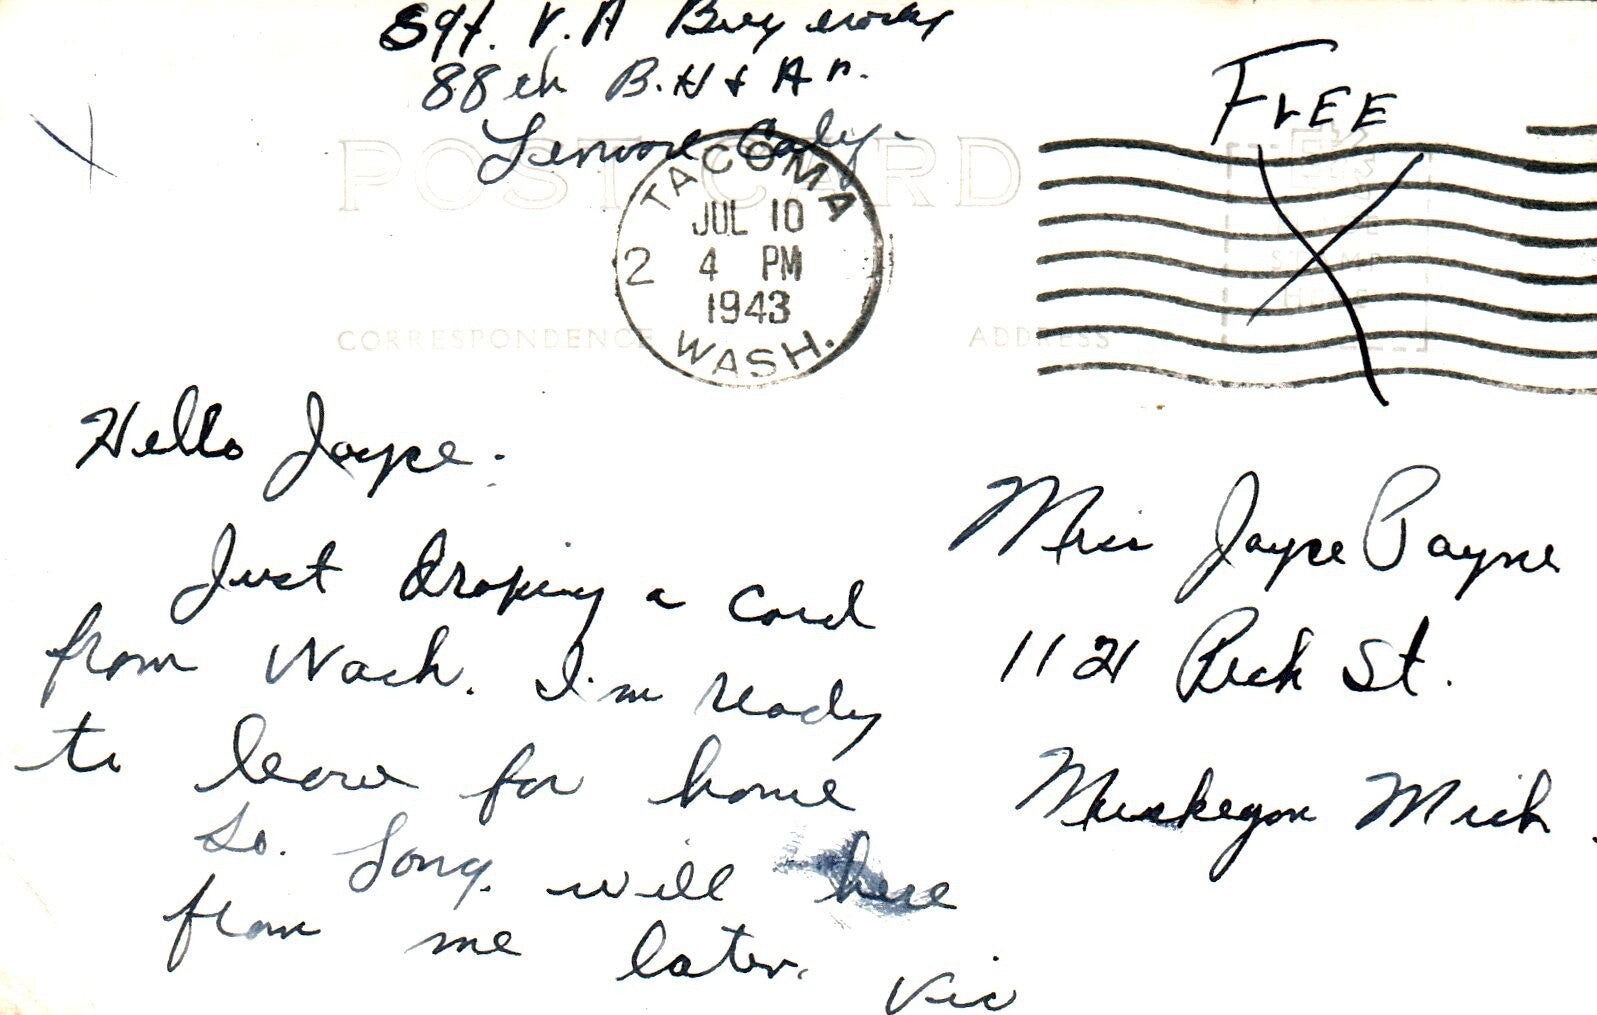 Sgt. V. A
88th B. H & A n.
Lemoore Calif.
FREE
POST CARD
TACOMA
JUL 10
2 4 PM
1943
WASH.
PLACE
STAMP
HERE
CORRESPONDENCE ADDRESS
Hello Joyce.
Just droping a card
from Wash. I'm ready
to leave for home
So. Long. will here
from me later.
Vic
Miss Joyce Payne
1121 Peck St.
Muskegon Mich.